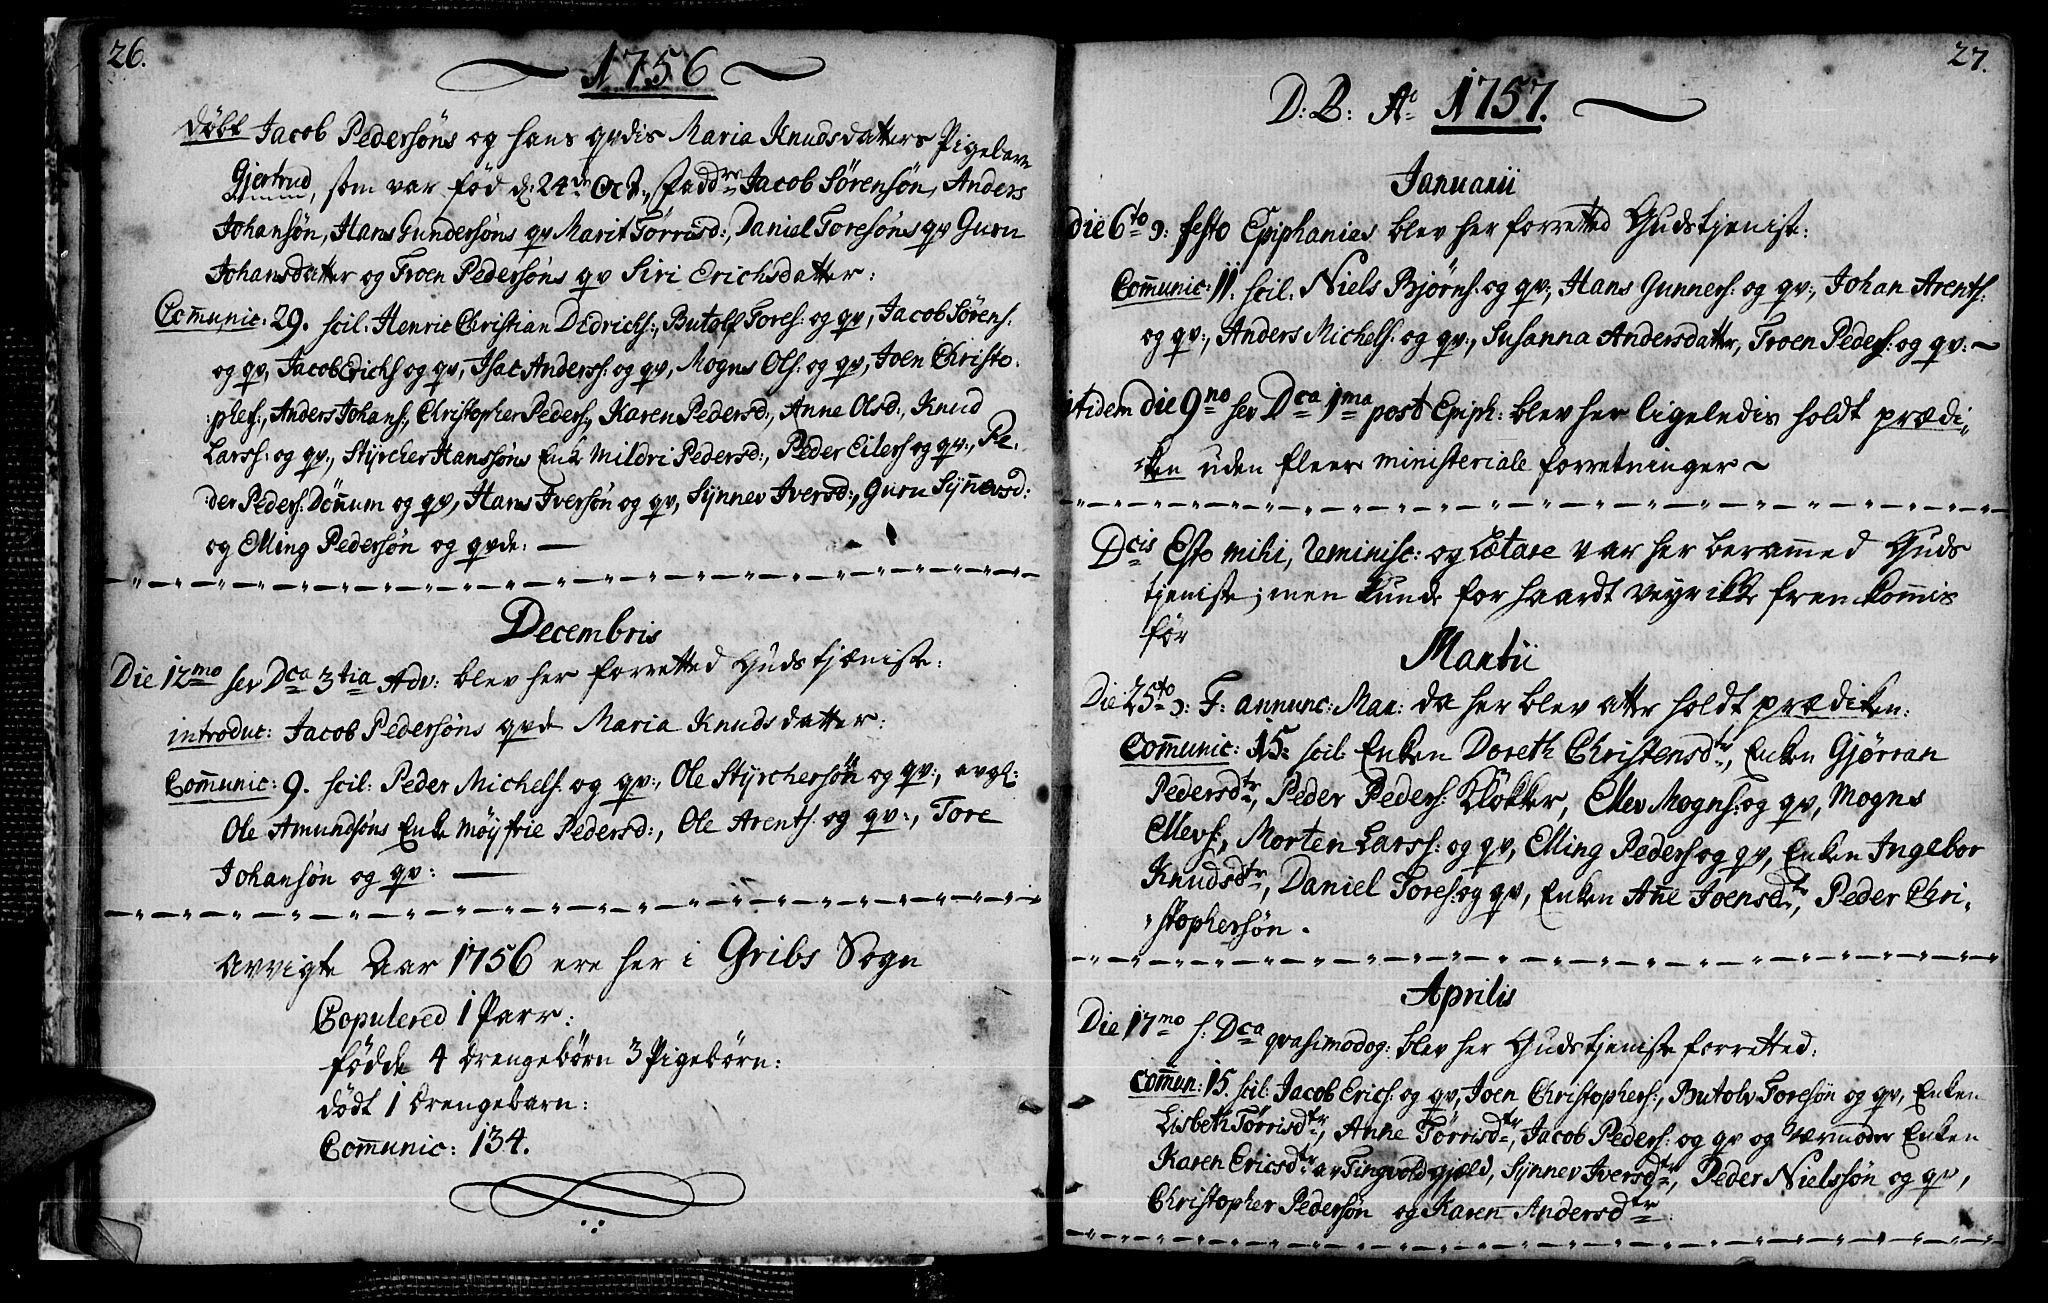 26.
1756
døbt Jacob Pedersøns og hans qvdis Maria Knudsdatters Pigebarn
Gjertrud, som var fød d: 24de Oct., Faddre Jacob Sørensøn, Anders
Johansøn, Hans Gundersøns qv Marit Tørrisd:, Daniel Toresøns qv Guru
Johansdatter og Troen Pedersøns qv Siri Erichsdatter:
Com̄unic: 29. scil: Henric Christian Didrichs:, Butolf Tores: og qv, Jacob Sørens:
og qv, Jacob Erichs og qv, Isac Anderss: og qv, Mogns Ols: og qv, Joen Christo:
:phers:, Anders Johans:, Christopher Peders:, Karen Pedersd:, Anne Olsd:, Knud
Larss: og qv:, Styrcher Hanssøns Enke Mildri Pedersd:, Peder Eilers og qv:, Pe:
:der Peders: Døn̄um og qv, Hans Iversøn og qv, Synnev Iversd:, Guru Syn̄evsd:
og Elling Pedersøn og qvde:
Decembris
Die 12mo sev Dca 3tia Adv: blev her forretted Gudstjæniste:
introduc: Jacob Pedersøns qvde Maria Knudsdatter:
Com̄unic: 9. scil: Peder Michels: og qv:, Ole Styrchersøn og qv:, avgl:
Ole Amundsøns Enke Møyfrie Pedersd:, Ole Arents: og qv:, Tore
Johansøn og qv:
Avvigte Aar 1756 ere her i Gribs Sogn
Copulered 1 Parr:
fødde 4 Drengebørn 3 Pigebørn:
dødt 1 Drengebarn:
Com̄unic: 134.
27.
D: B: Ao 1757.
Januarii
Die 6to ɔ: festo Epiphanias blev her forretted Gudstjeniste:
Com̄unic: 11. scil. Niels Bjørns: og qv:, Hans Gunners: og qv:, Johan Arents:
og qv:, Anders Michels: og qv:, Susanna Andersdatter, Troen Peders: og qv:
itidem die 9no sev Dca 1ma post Epiph: blev her ligeledis holdt prædi,
:ken uden fleer ministeriale forretninger
Dcis Esto mihi, Reminisc: og Lætare var her beram̄ed Guds
tjeniste; men kunde for haardt veyr ikke frem kom̄is
før
Martii
Die 25to ɔ: F: annunc: Mar: da her blev atter holdt prædiken:
Com̄unic: 15: scil: Enken Doreth Christensdtr, Enken Gjørran
Pedersdtr, Peder Peders: Kløkker, Ellev Mogns: og qv, Mogns
Ellevs:, Morten Larss: og qv, Elling Peders og qv, Enken Ingebor
Knudsdtr, Daniel Tores: og qv, Enken An̄e Joensdtr, Peder Chri,
,stophersøn.
Aprilis
Die 17mo s: Dca qvasimodog: blev her Gudstjeniste forretted:
Com̄un: 15. scil: Jacob Erics: og qv, Joen Christophers:, Butolv Toresøn og qv, Enken
Lisbeth Tørrisdtr, Anne Tørrisdtr, Jacob Peders: og qv og Vermoder Enken
Karen Ericsdtr av Tingvold gjæld, Synnev Iversdtr, Peder Nielssøn og qv,
Christopher Pedersøn og Karen Andersdtr.